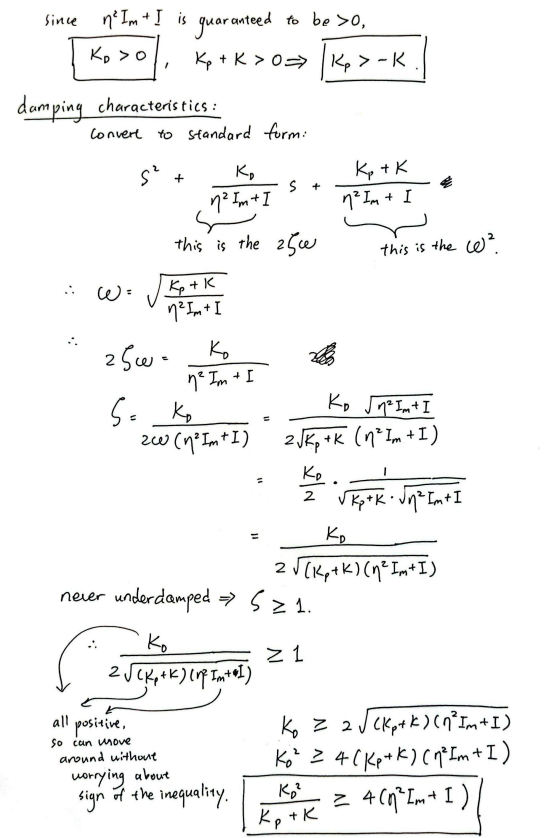 since η²Iₘ + I is guaranteed to be >0,
K_D > 0, K_p + K > 0 ⇒ K_p > -K.
damping characteristics:
Convert to standard form:
s² + K_D/(η²Iₘ + I) s + (K_p + K)/(η²Iₘ + I)
this is the 2ζω this is the ω².
∴ ω = √((K_p + K)/(η²Iₘ + I))
∴ 2ζω = K_D/(η²Iₘ + I)
ζ = K_D/(2ω(η²Iₘ + I)) = K_D √(η²Iₘ + I)/(2√(K_p + K) (η²Iₘ + I))
= K_D/2 · 1/(√(K_p + K) · √(η²Iₘ + I))
= K_D/(2√((K_p + K)(η²Iₘ + I)))
never underdamped ⇒ ζ ≥ 1.
∴ K_D/(2√((K_p + K)(η²Iₘ + I))) ≥ 1
all positive,
so can move
around without
worrying about
sign of the inequality.
K_D ≥ 2√((K_p + K)(η²Iₘ + I))
K_D² ≥ 4(K_p + K)(η²Iₘ + I)
K_D²/(K_p + K) ≥ 4(η²Iₘ + I)